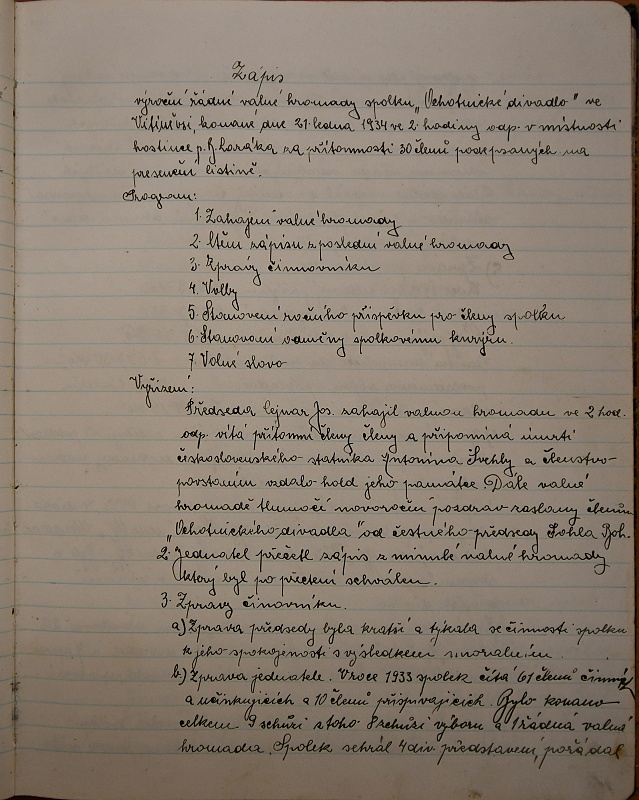 Zápis
výroční řádné valné hromady spolku „Ochotnické divadlo" ve
Vitiněvsi, konané dne 21. ledna 1934 ve 2. hodiny odp. v místnosti
hostince p. J. Horáka za přítomnosti 30 členů podepsaných na
presenční listině.
Program:
1. Zahájení valné hromady
2. Čtení zápisu z poslední valné hromady
3. Zprávy činnovníku
4. Volby
5. Stanovení ročního příspěvku pro členy spolku
6. Stanovení odměny spolkovému kurýru.
7. Volné slovo
Vyřízení:
Předseda Cejnar Jos. zahájil valnou hromadu ve 2 hod.
odp. vítá přítomni členy členy a připomíná úmrtí
československého statníka Antonína Švehly a členstvo
povstaním vzdalo hold jeho památce. Dále valné
hromadě tlumočí novoroční pozdrav zaslany členům
„Ochotnického divadla" od čestného předsedy Boh.
2. Jednatel přečetl zápis z minulé valné hromady
který byl po přečtení schválen.
3. Zpravy činovníku.
a) Zprava předsedy byla kratší a týkala se činnosti spolku
k jeho spokojenosti s výsledkem moralním.
b.) Zprava jednatele. V roce 1933 spolek čítá 61 členů činných
a učinkujících a 10 členů přispívajících. Bylo konano
celkem 9 schůzí z toho 8 schůzí výboru a 1 řádná valná
hromada. Spolek sehrál 4 div. představení, pořádal